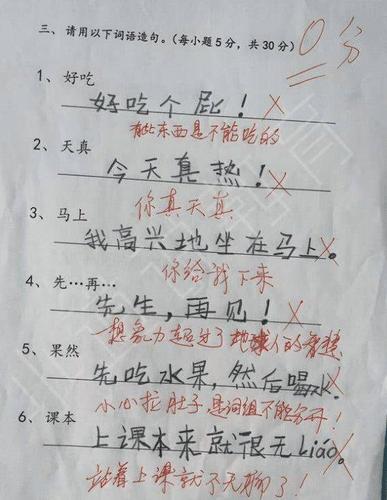 三、请用以下词语造句。（每小题5分，共30分）0分
1、好吃
好吃个屁！
有些东西是不能吃的
2、天真
今天真热！
你真天真
3、马上
我高兴地坐在马上。
你给我下来
4、先…再…
先生，再见！
想象力超乎了地球人的智慧
5、果然
先吃水果，然后喝水。
小心拉肚子是词组不能分开！
6、课本
上课本来就很无liáo。
站着上课就不无聊了！